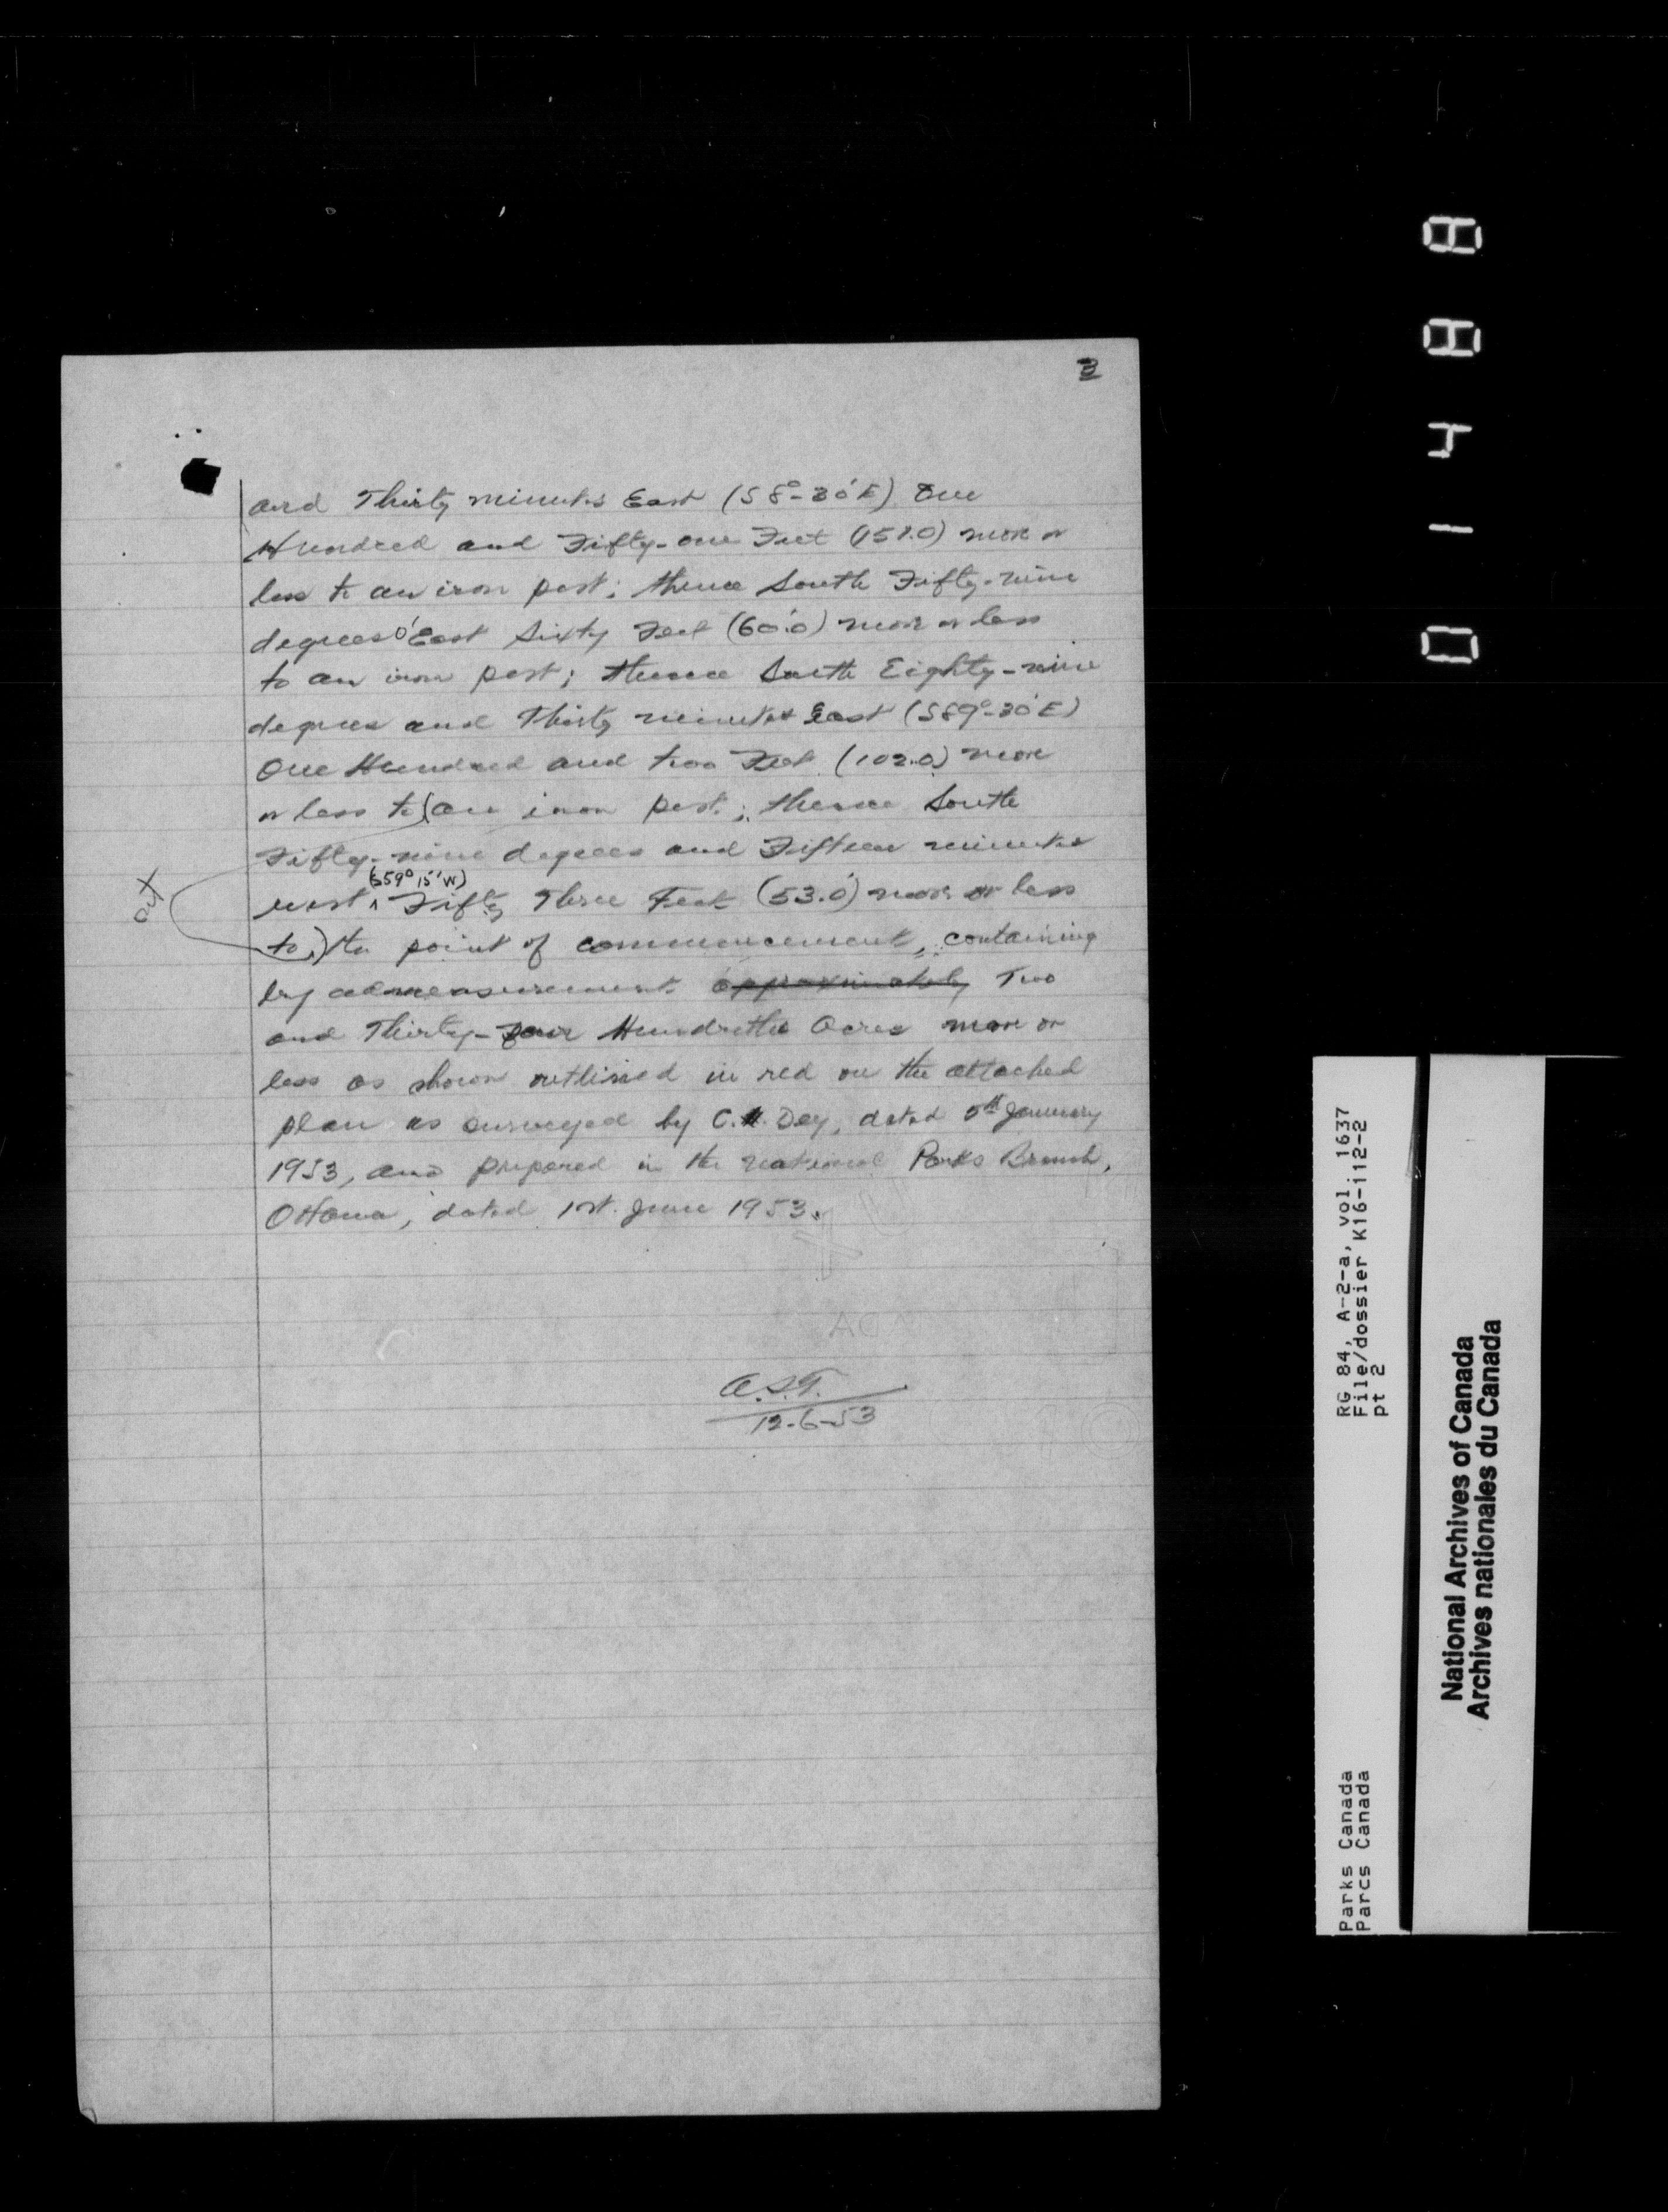 3
and Thirty minutes East (S8°-30'E) One
Hundred and Fifty-one Feet (151.0) more or
less to an iron post; thence South Fifty-nine
degrees 0' East Sixty Feet (60.0) more or less
to an iron post; thence South Eighty-nine
degrees and Thirty minutes East (S89°-30'E)
One Hundred and two Feet (102.0) more
or less to (an iron post; thence South
Fifty-nine degrees and Fifteen minutes
(S59° 15' W)
west ^ Fifty Three Feet (53.0') more or less
out
to) the point of commencement, containing
by admeasurement approximately Two
and Thirty-four Hundreths Acres more or
less as shown outlined in red on the attached
plan as surveyed by C.M. Dey, dated 5th January
1953, and prepared in the National Parks Branch,
Ottawa, dated 1st. June 1953.
12-6-53
RG 84, A-2-a, vol. 1637
File/dossier K16-112-2
pt 2
Parks Canada
Parcs Canada
National Archives of Canada
Archives nationales du Canada